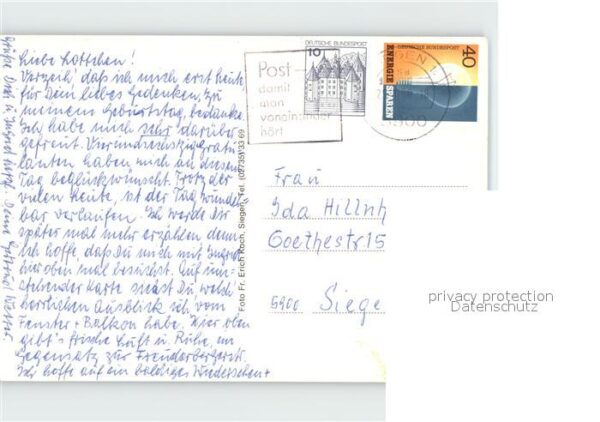 Liebe Lottchen!
Verzeih', daß ich mich erst heute
für Dein liebes Gedenken, zu
meinem Geburtstag, bedanke.
Ich habe mich sehr darüber
gefreut. Vierundsechzig Gratu
lanten haben mich an diesem
Tag beglückwünscht. Trotz der
vielen Leute, ist der Tag, wunder
bar verlaufen. Ich werde Dir
später mal mehr erzählen denn
ich hoffe, daß Du mich mit Ingrid
hier oben mal besuchst. Auf um-
stehender Karte siehst Du welch
herrlichen Ausblick ich vom
Fenster + Balkon habe. Hier oben
gibt's frische Luft u. Ruhe, im
Gegensatz zur Freudenbergerstr.
Ich hoffe auf ein baldiges Wiedersehen +
Grüße Dich u. Ingrid herzl. Deine
Foto Fr. Erich Koch, Siegen, Tel. (02735) 33 69
Post -
damit
man
voneinander
hört
10
DEUTSCHE BUNDESPOST
DEUTSCHE BUNDESPOST
40
ENERGIE SPAREN
5900
Frau
Ida Hillnh
Goethestr 15
5900 Siege
privacy protection
Datenschutz